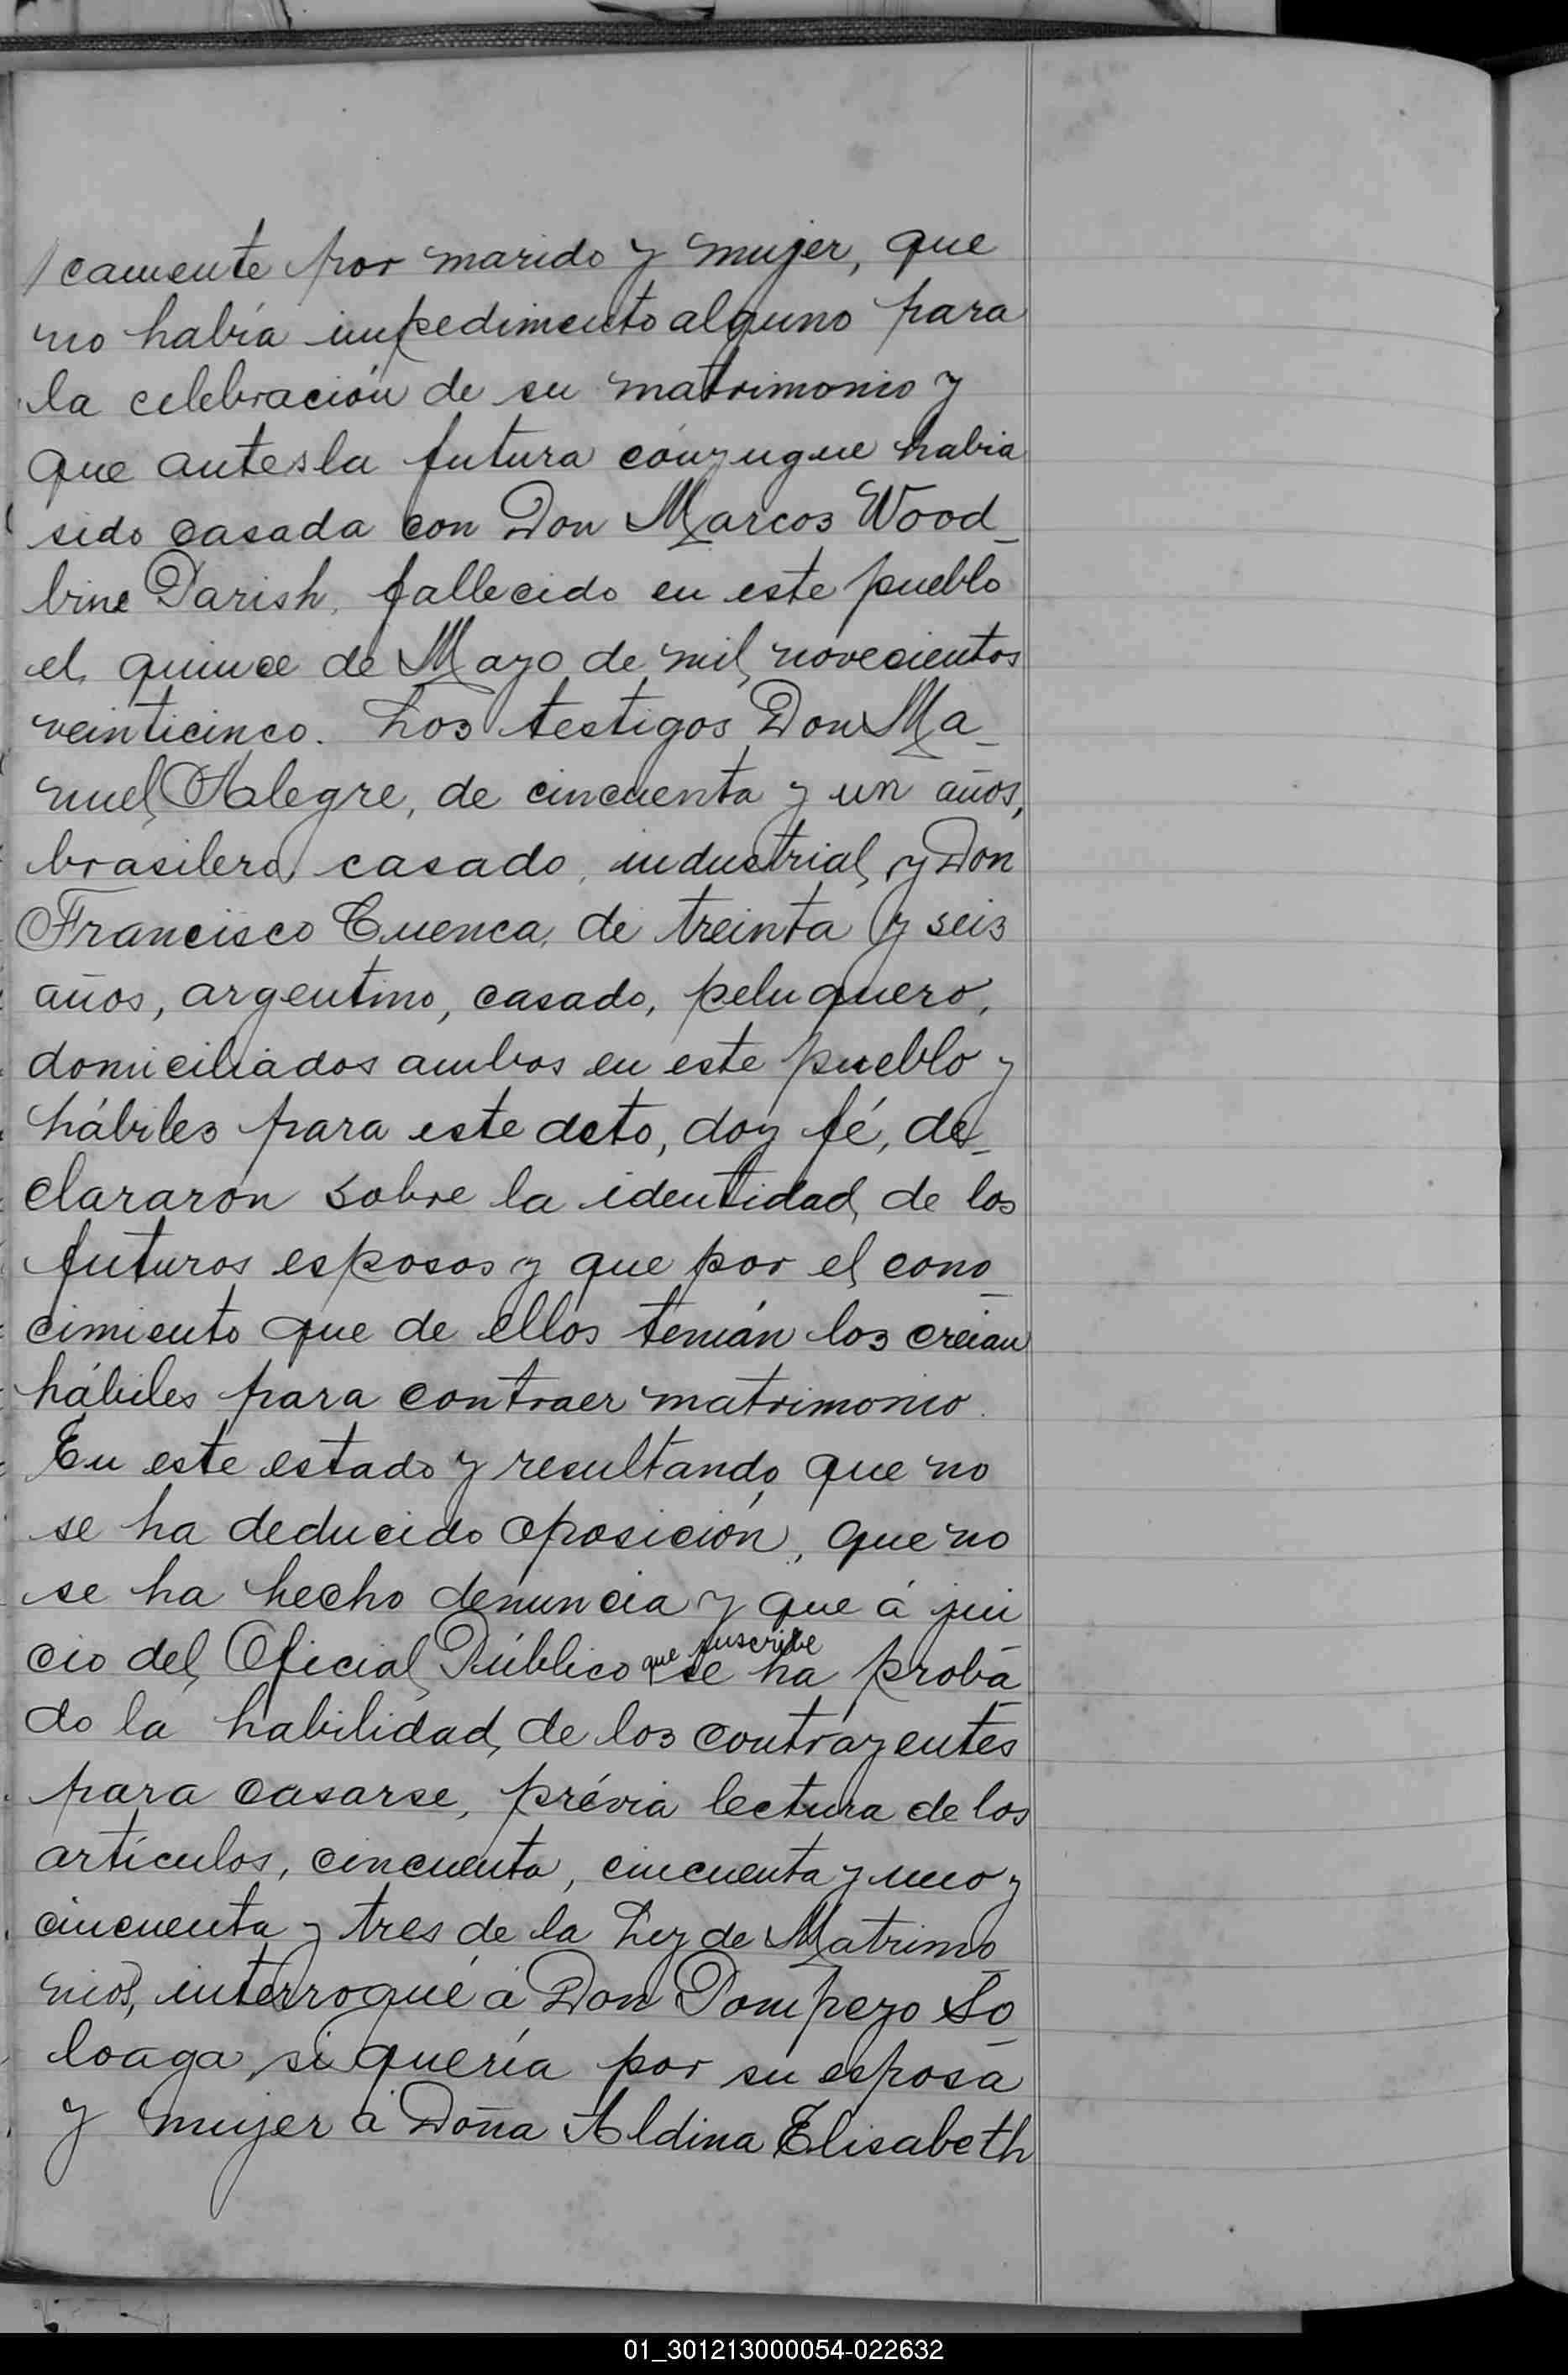 camente por marido y mujer, que
no había impedimento alguno para
la celebración de su matrimonio y
que antes la futura cónyugue habia
sido casada con Don Marcos Wood_
bine Parish, fallecido en este pueblo
el quince de Mayo de mil novecientos
veinticinco. Los testigos Don Ma_
nuel Alegre, de cincuenta y un años,
brasilero, casado, industrial, y Don
Francisco Cuenca, de treinta y seis
años, argentino, casado, peluquero,
domiciliados ambos en este pueblo y
hábiles para este acto, doy fé, de_
clararon sobre la identidad de los
futuros esposos y que por el cono_
cimiento que de ellos tenián los creian
hábiles para contraer matrimonio.
En este estado y resultando que no
se ha deducido oposición, que no
se ha hecho denuncia y que á jui_
cio del Oficial Público que suscribe se ha proba_
do la habilidad de los contrayentes
para casarse, prévia lectura de los
artículos, cincuenta, cincuenta y uno y
cincuenta y tres de la Ley de Matrimo_
nios, interrogué á Don Pompeyo So_
loaga, si quería por su esposa
y mujer á Doña Aldina Elisabeth
01_301213000054-022632